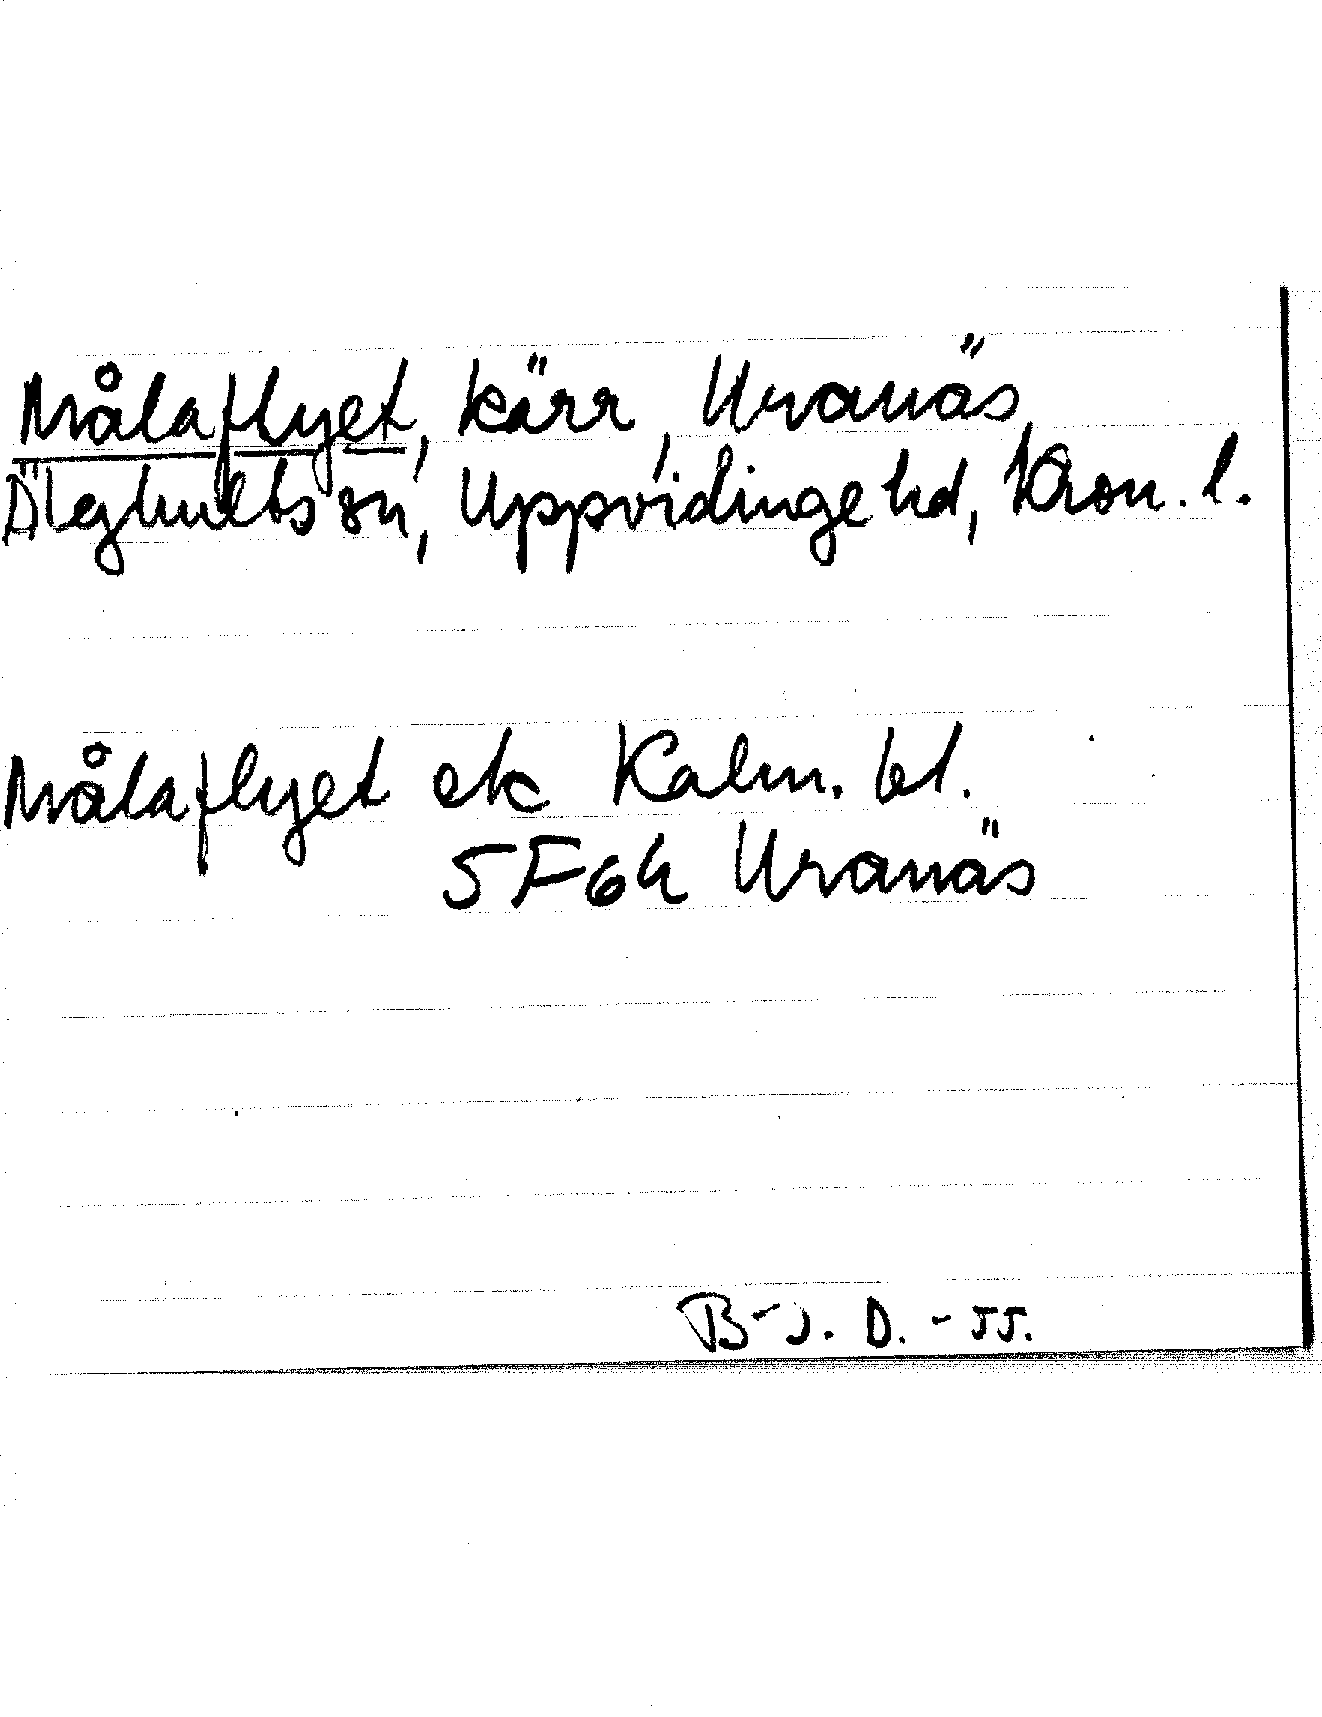 Målaflyet, kärr, Uranäs,
Älghults sn, Uppvidinge hd, Kron. l.
Målaflyet ek Kalm. bl.
5F6h Uranäs
B-J. D. -55.